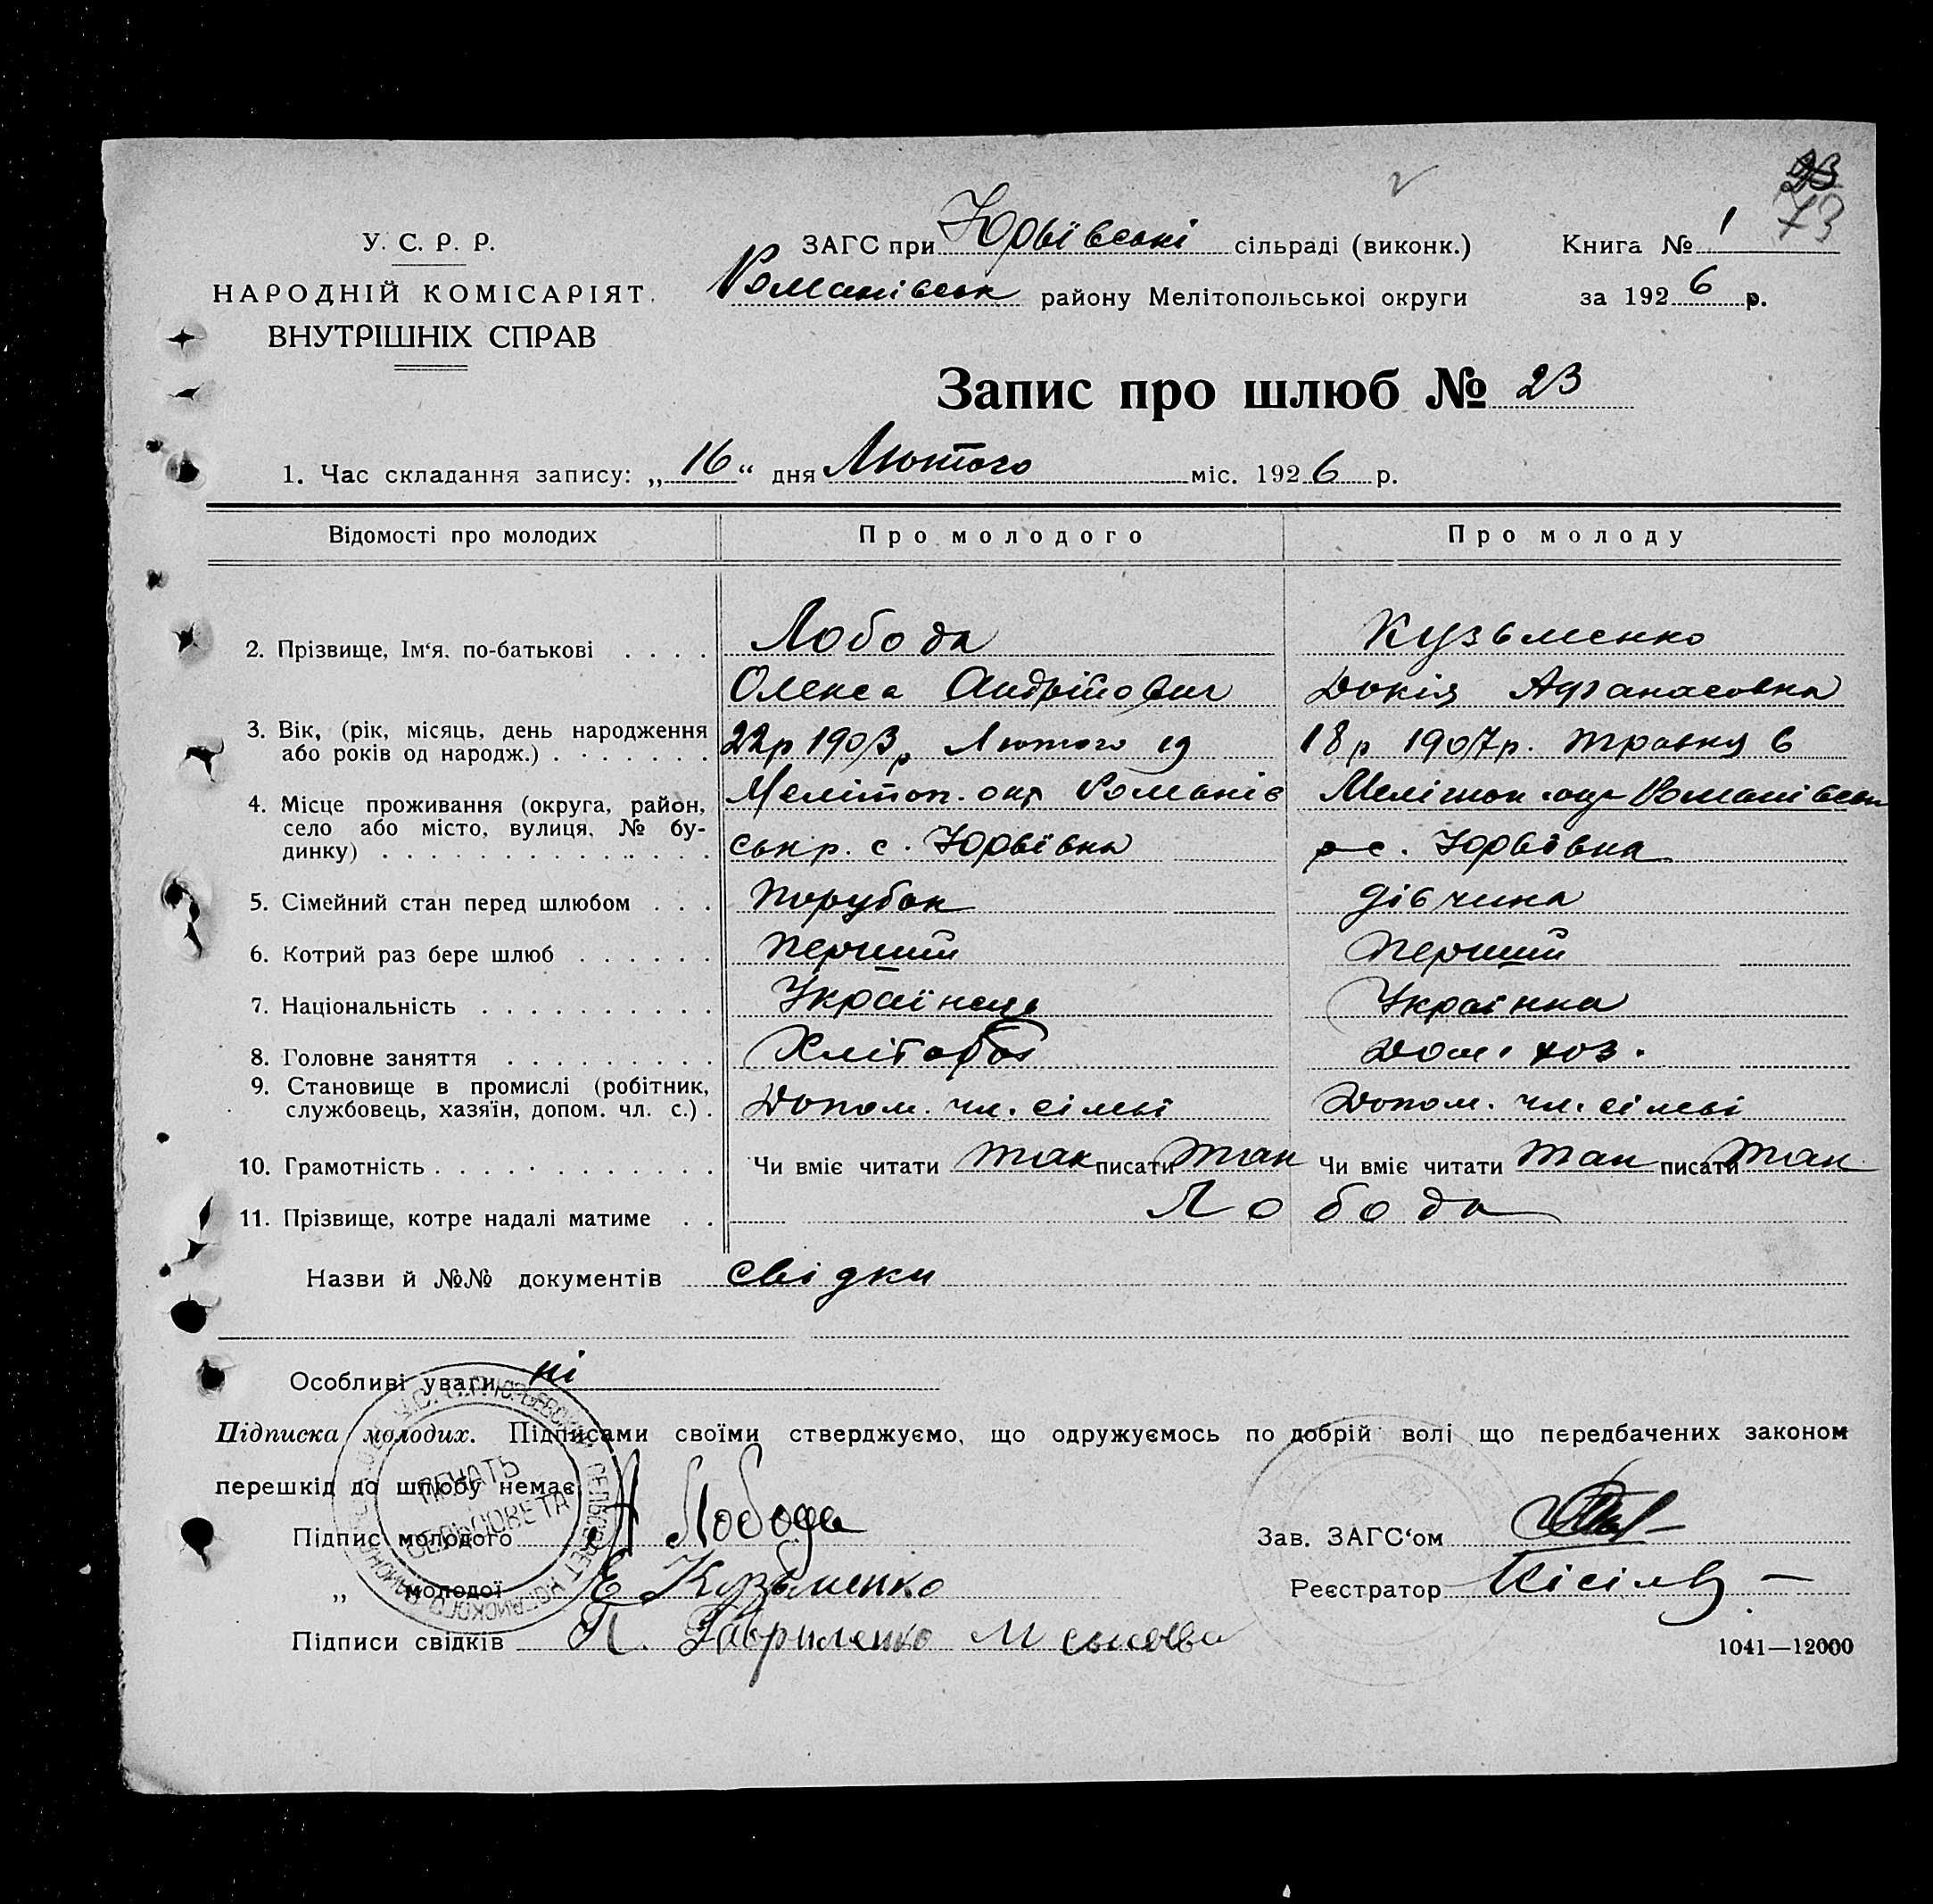 73
У. С. Р. Р.
НАРОДНІЙ КОМІСАРІЯТ
ВНУТРІШНІХ СПРАВ
ЗАГС при Юрвївські сільраді (виконк.)
Книга № 1
Романівськ району Мелітопольськоі округи
за 1926 р.
Запис про шлюб № 23
1. Час складання запису: „16“ дня Лютого міс. 1926 р.
Відомості про молодих Про молодого Про молоду
2. Прізвище, Ім‘я, по-батькові . . . . Лобода Кузьменко
Олекса Андрійович Докія Афанасовна
3. Вік, (рік, місяць, день народження
або років од народж.) . . . . . . . 22р 1903р Лютого 19 18р 1907р. травня 6
4. Місце проживання (округа, район,
село або місто, вулиця, № бу-
динку) . . . . . . . . . . . . . . .
Мелітоп. окр Романів Мелітоп. окр Романівськ
ськ р. с. Юрвївка р с. Юрвївка
5. Сімейний стан перед шлюбом . . . Парубок дівчина
6. Котрий раз бере шлюб . . . . . . Перший Перший
7. Національність . . . . . . . . . . Українець Українка
8. Головне заняття . . . . . . . . . Хлібороб Дом. хоз.
9. Становище в промислі (робітник,
службовець, хазяїн, допом. чл. с.) . Допом. чл. сімьї Допом. чл. сімьї
10. Грамотність . . . . . . . . . . . . Чи вміє читати так писати так Чи вміє читати так писати так
11. Прізвище, котре надалі матиме . . Лобода
Назви й №№ документів свідки
Особливі уваги ні
Підписка молодих. Підписами своїми стверджуємо, що одружуємось по добрій волі що передбачених законом
перешкід до шлюбу немає
ПЕЧАТЬ
СЕЛЬСОВЕТА
Підпис молодого А Лобода
Зав. ЗАГС‘ом
„ молодої Е Кузьменко
Реєстратор Кісіль
Підписи свідків П. Гавриленко М
1041—12000